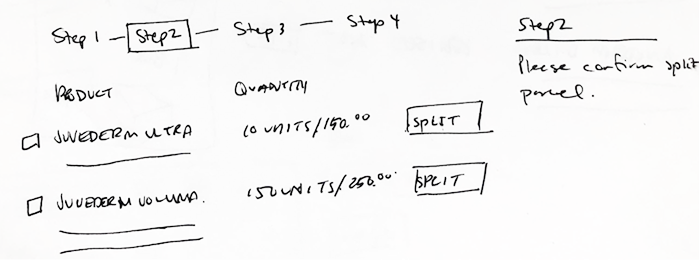 Step 1 — Step2 — Step 3 — Step 4
PRODUCT QUANTITY
JUVEDERM ULTRA 10 UNITS/150.00 SPLIT
JUVEDERM VOLUMA. 150 UNITS/250.00 SPLIT
Step2
Please confirm split
parcel.